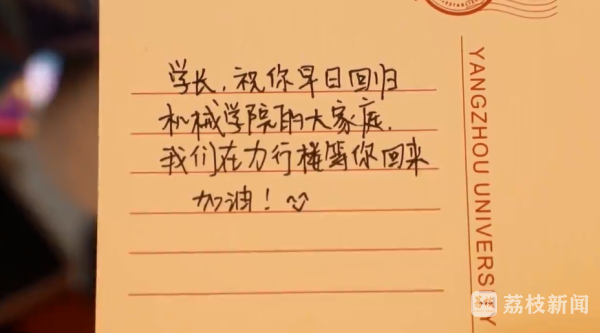 学长，祝你早日回归
机械学院的大家庭，
我们在力行楼等你回来
加油！
YANGZHOU UNIVERSITY
荔枝新闻